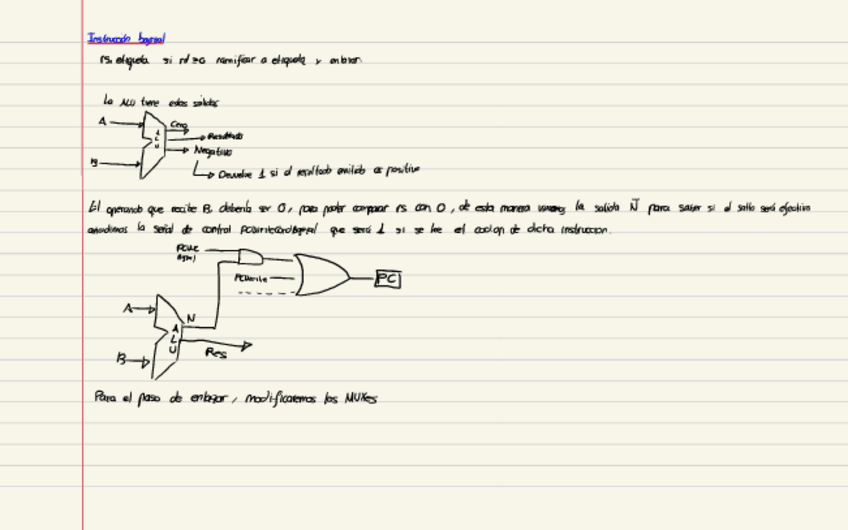 Instrucción bgezal
rs, etiqueta si rd ≥ 0 ramificar a etiqueta y enlazar
La ALU tiene estas salidas
A
Cero
ALU
Resultado
Negativo
B
Devuelve 1 si el resultado emitido es positivo
El operando que recibe B, debería ser 0, para poder comparar rs con 0, de esta manera la salida N̄ para saber si el salto será efectivo
añadimos la señal de control que será 1 si se lee el codop de dicha instruccion.
PCWrite
PC
A
N
ALU
B
Res
Para el paso de enlazar, modificaremos los MUXes